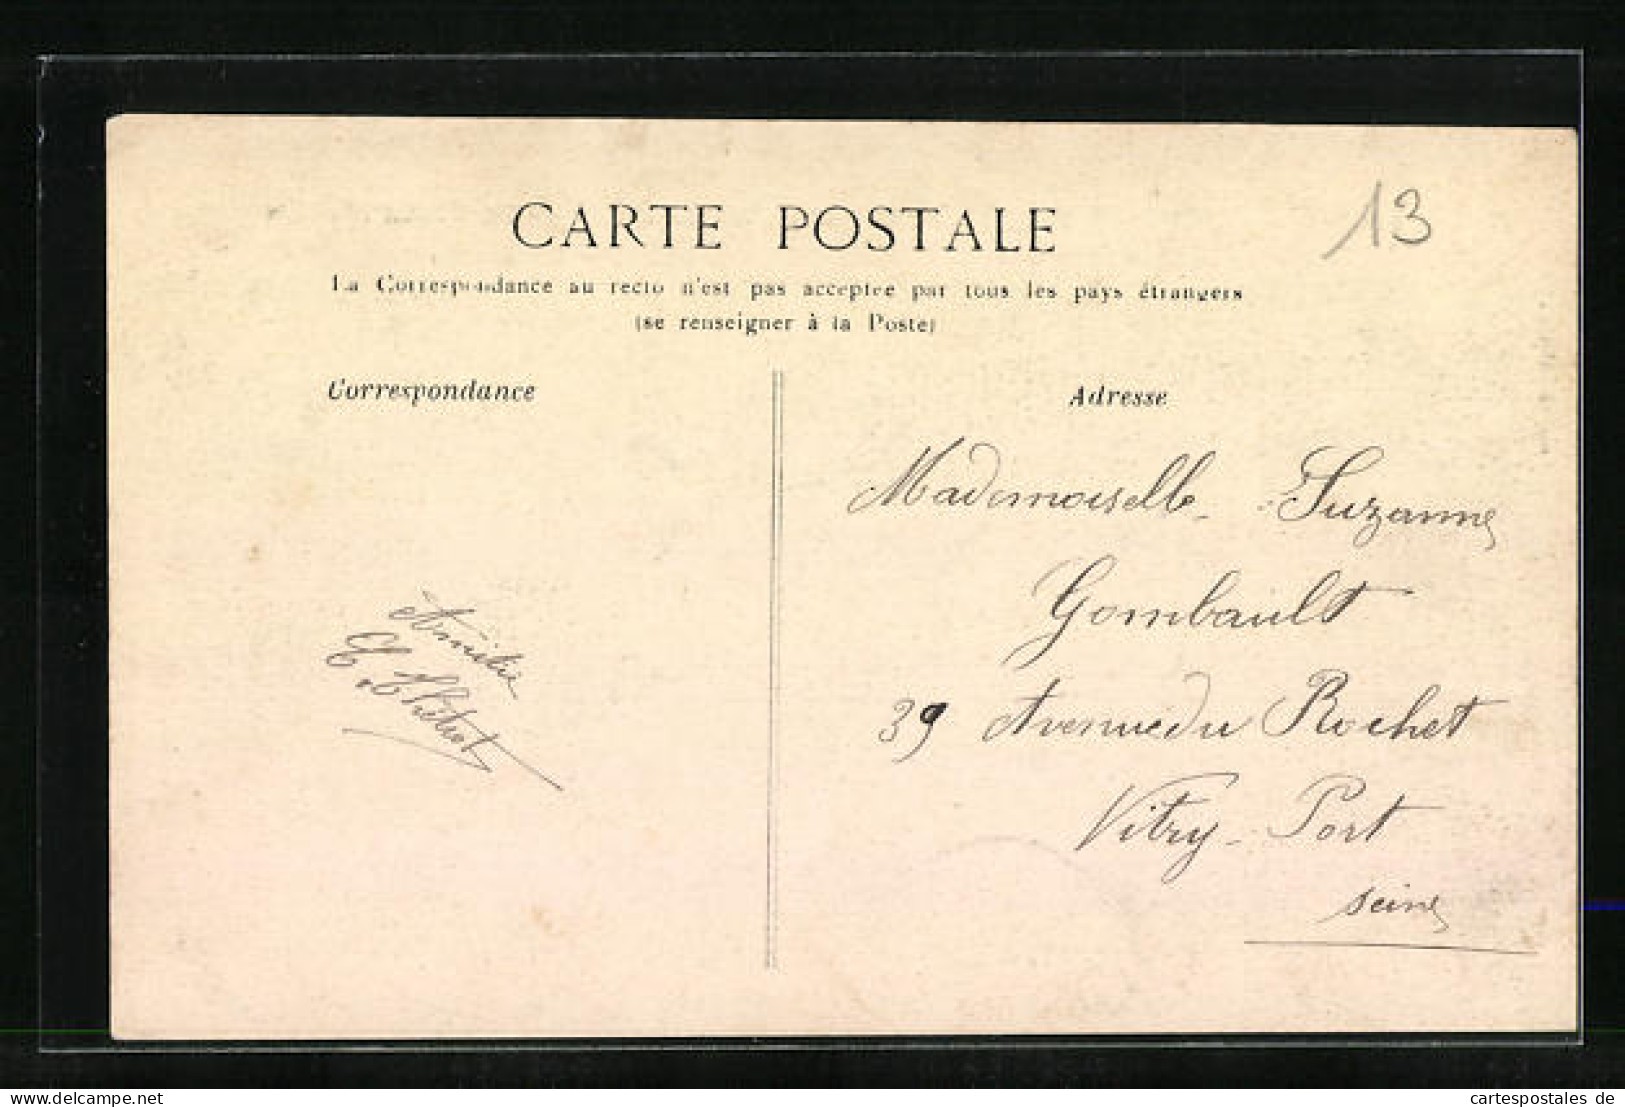 CARTE POSTALE
13
La Correspondance au recto n'est pas acceptée par tous les pays étrangers
(se renseigner à la Poste)
Correspondance
Adresse
Amitié
Mademoiselle Suzanne
Gombault
39 Avenue du Rochet
Vitry-Port
Seine
akpool.de
cartespostales de